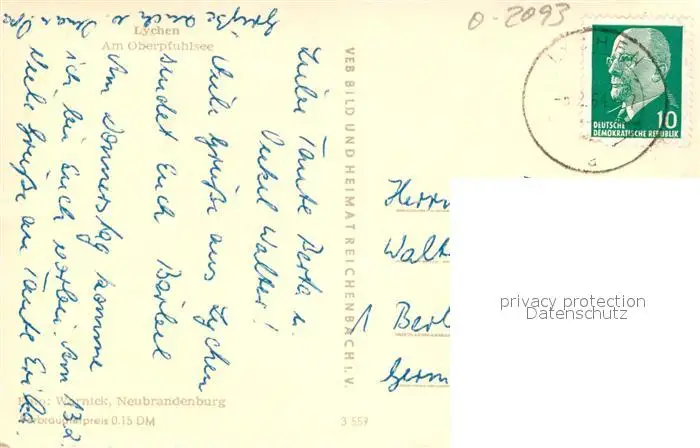 O-2093
Lychen
Am Oberpfuhlsee
Liebe Tante Berta u.
Onkel Walter!
Viele Grüße aus Lychen
sendet Euch Bärbel
Am Donnerstag komme
ich bei Euch vorbei. Am 13.2.
Viele Grüße an Tante Erika.
Grüße auch v.
VEB BILD UND HEIMAT REICHENBACH i. V.
10
DEUTSCHE
DEMOKRATISCHE REPUBLIK
Herrn
Walt
1 Berl
Germ
privacy protection
Datenschutz
Foto: Warnick, Neubrandenburg
Verbraucherpreis 0.15 DM
3 559